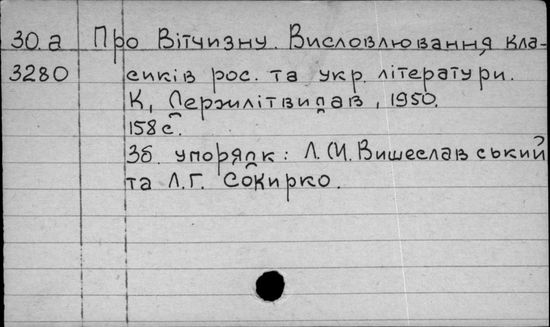 30.а Про Вітчизну. Висловлювання кла-
3280 сиків рос. та укр. літератури.
К, Держлітвидав, 1950.
158 с.
Зб. упорядк: Л.М. Вишеславський
та Л.Г. Сокирко.